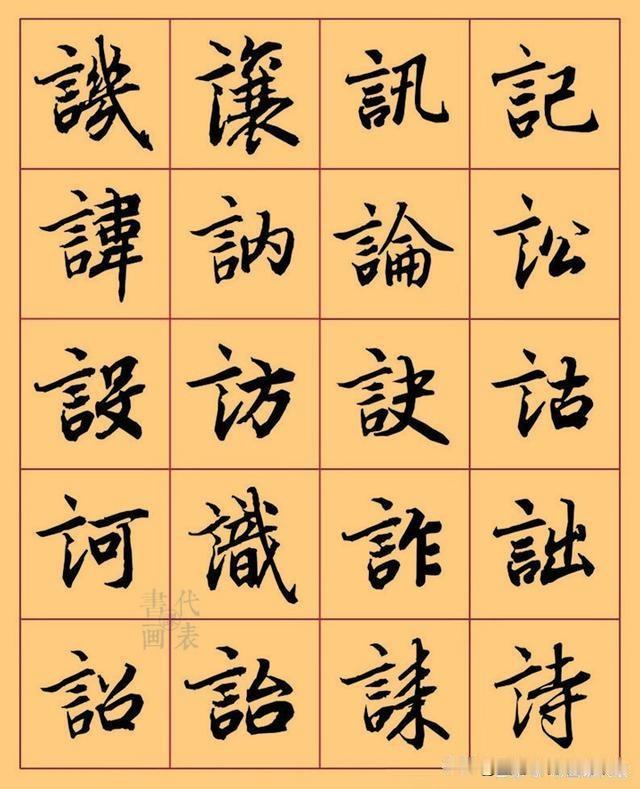 譏 讓 訊 記
諱 訥 論 訟
設 訪 訣 詁
訶 識 詐 詘
詔 詒 誄 詩
書代
画表